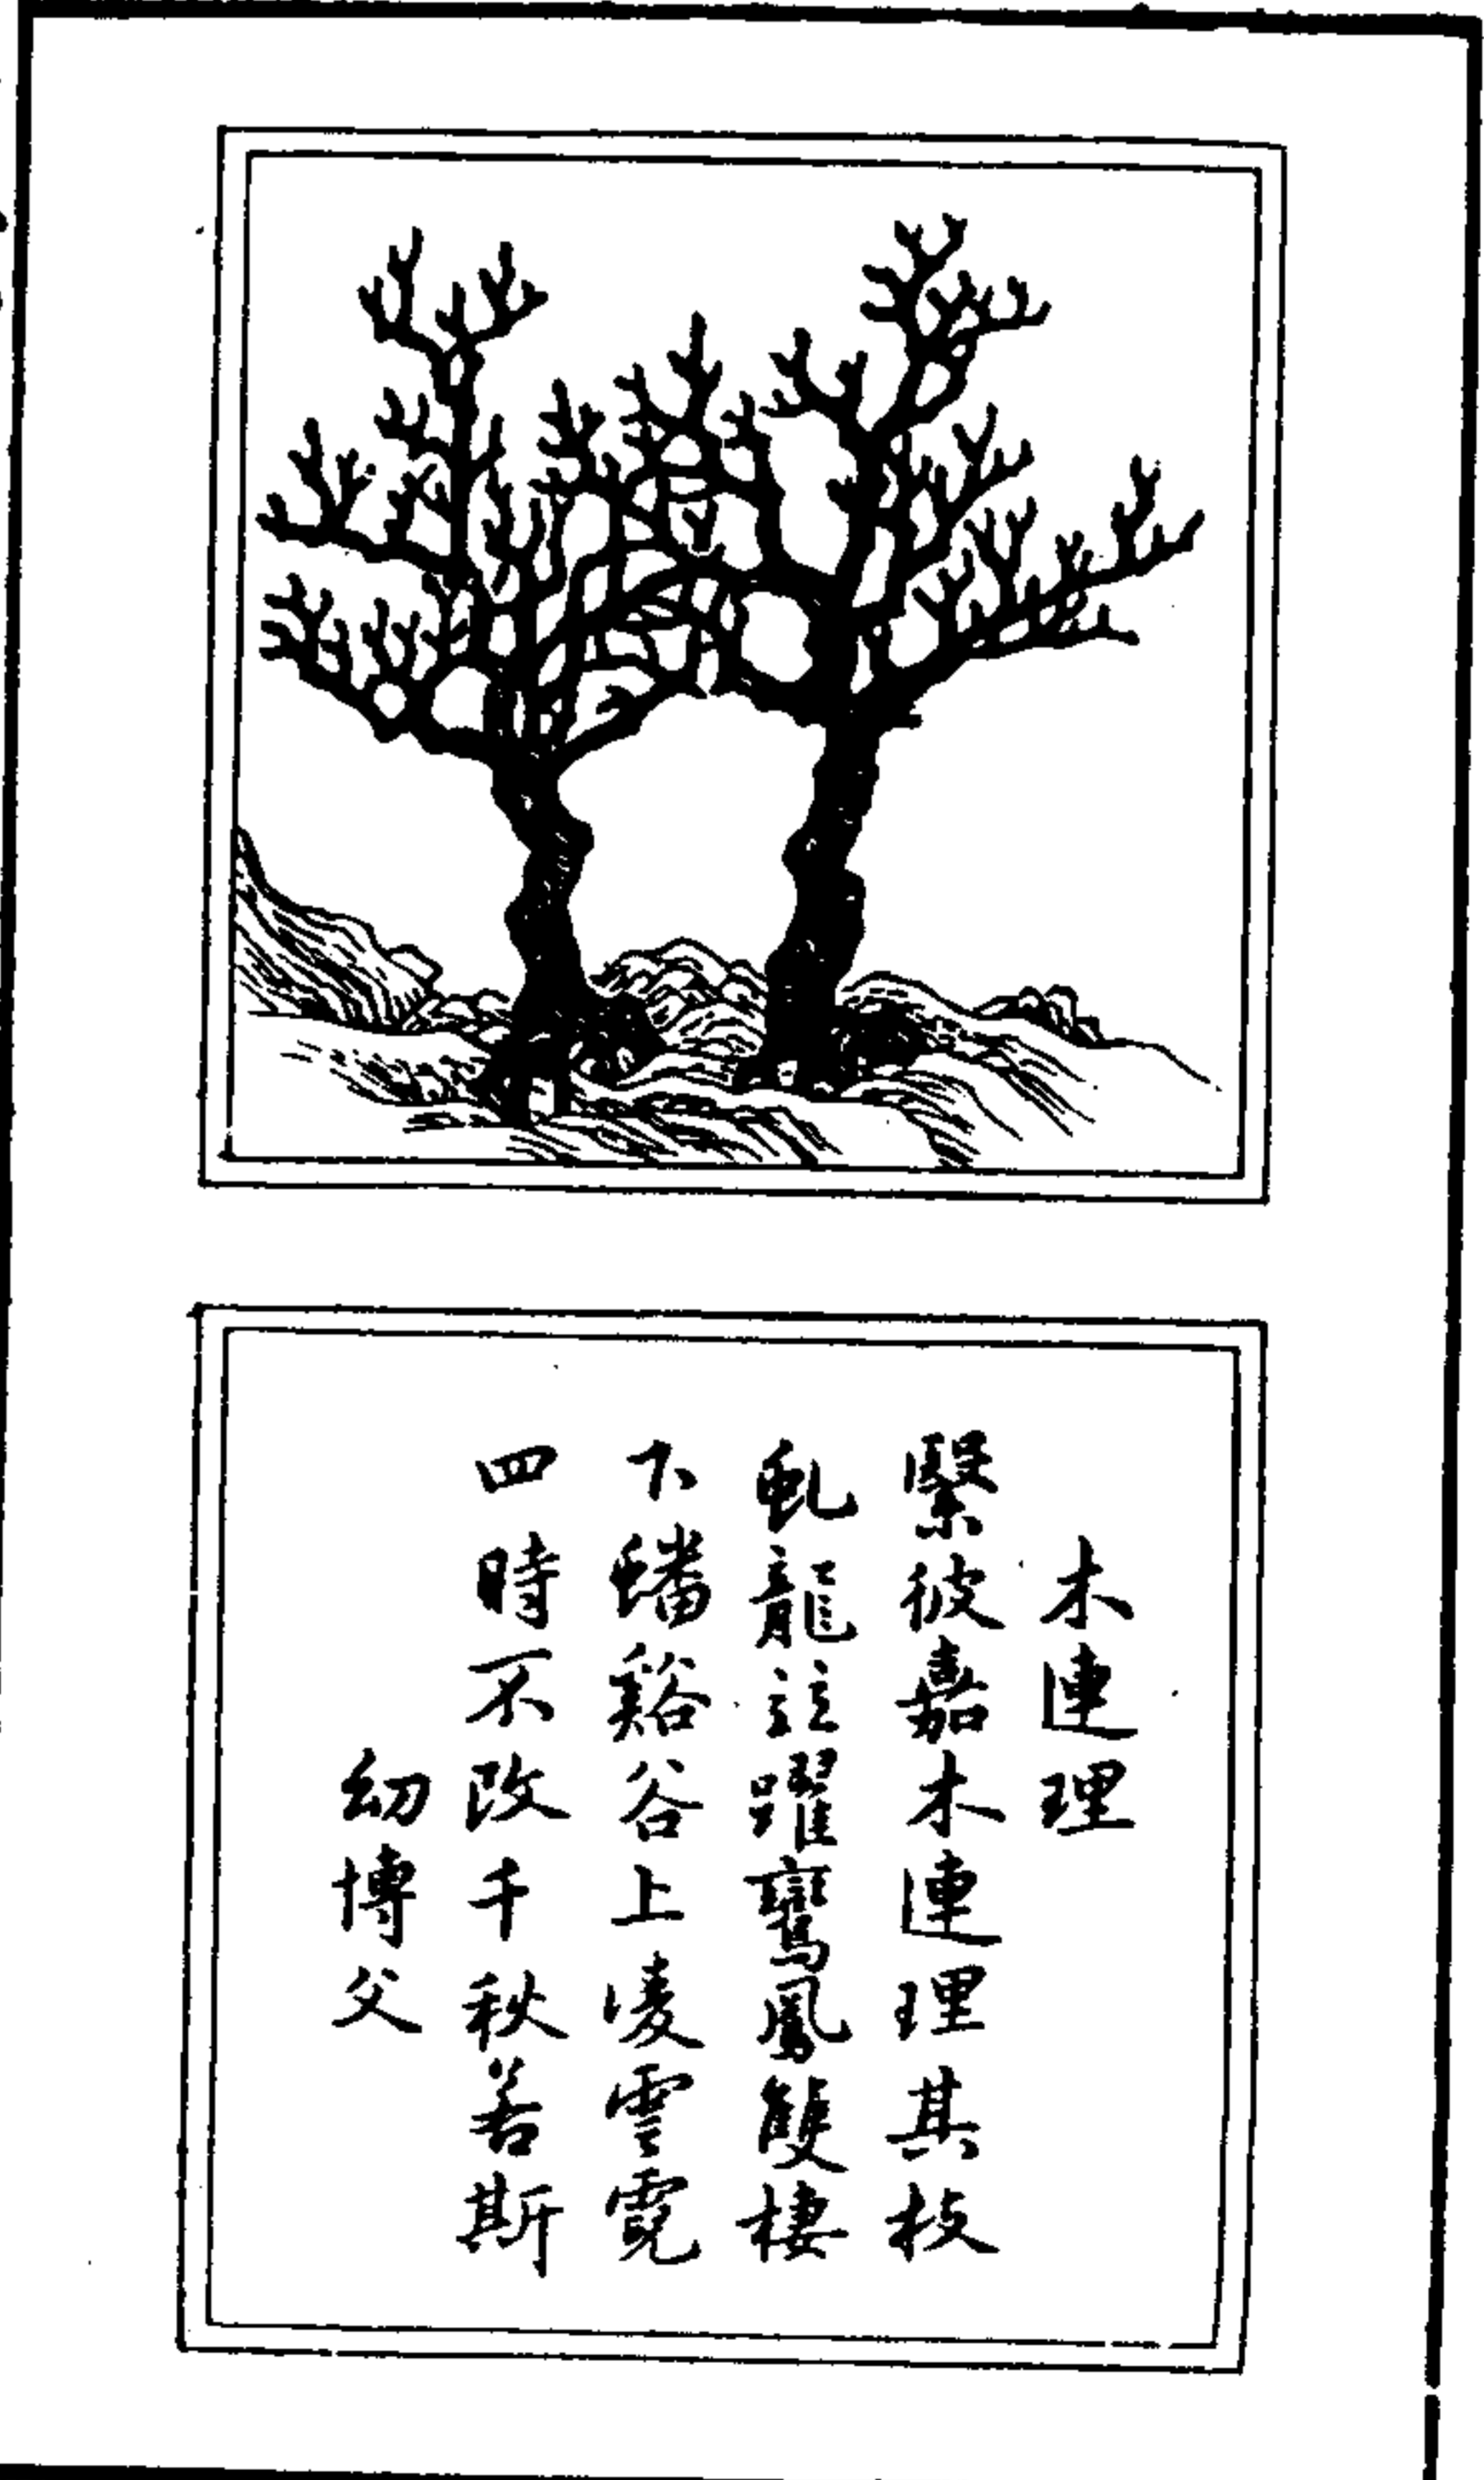 木連理
繄彼嘉木連理其枝
虬龍竝躍鸞鳳雙棲
下蟠谿谷上凌雲霓
四時不改千秋若斯
幼博父